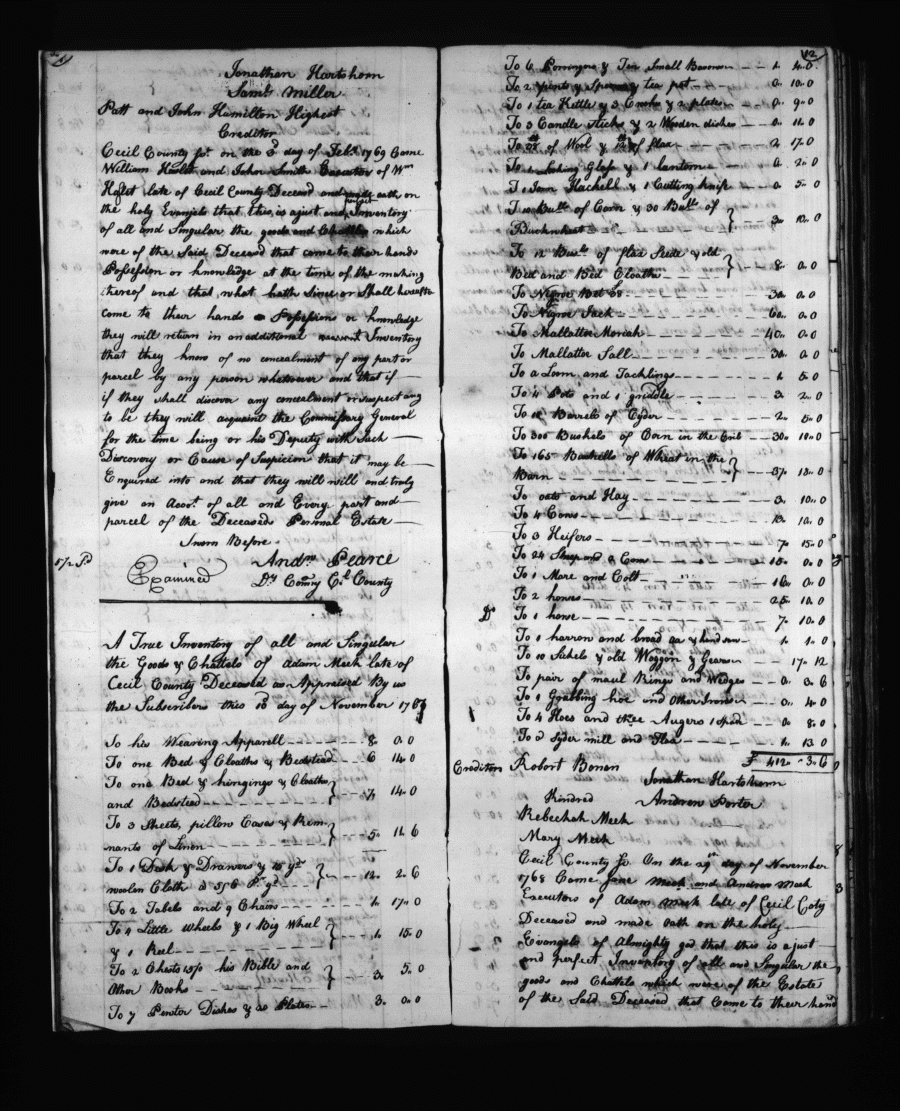 Jonathan Hartshorn
Saml Miller
Patt and John Hamilton Highest
Creditor
Cecil County Sc. on the 3d day of Febr 1769 Came
William Haslet and John Smith Executor of Wm
Haslet late of Cecil County Deceasd and made oath, on
the holy Evanjels that this, is a just and perfect Inventory
of all and Singular the goods and Chattles which
were of the Said Deceasd that come to their hands
Possesston or knowledge at the time of the making
thereof and that what hath Since or Shall hereafter
come to their hands Possessions or knowledge
they will return in an additional Inventory
that they know of no concealment of any part or
parcel by any person whatsoever and that if
if they shall discover any concealment or suspect any
to be they will acquaint the Commissary General
for the time being or his Deputy with Such
Discovery or Cause of Suspicion that it may be
Enquired into and that they will well and truly
give an Accot. of all and Every part and
parcel of the Deceaseds Personal Estate
Sworn Before
Andw Pearce
Examined Dy Comry Cl County
A True Inventory of all and Singular
the Goods & Chattels of Adam Meek late of
Cecil County Deceasd as Appraised By us
the Subscribers this 18 day of November 176
To his Wearing Apparell 8. 0. 0
To one Bed & Cloaths & Bedstead 6 14. 0
To one Bed & hingings & Cloaths
and Bedstead 7. 14. 0
To 3 Sheets, pillow Cases & Rem-
nants of Linen 5. 11. 6
To 1 Desk & Drawers & 15 yds
woolen Cloth @ 5/6 Pr yd 12. 2. 6
To 2 Tabels and 9 Chairs 1. 17. 0
To 4 Little wheels & 1 Big Wheel
& 1 Reel 1. 15. 0
To 2 Chests 15/0 his Bible and
Other Books 3. 5. 0
To 7 Pewter Dishes & 20 Plates 3. 0. 0
12
To 6 Porringers & Ten Small Basons 1. 4. 0
To 2 pints & Spoons & tea pot 0. 10. 0
To 1 tea Kettle & 3 Crooks & 2 plates 0. 9. 0
To 3 Candle sticks & 2 Wooden dishes 0. 11. 0
To of Wool & of flax 2. 17. 0
To 1 Looking Glass & 1 lantorn 0. 2. 0
To 1 Iron Hackell & 1 Cutting knife 0. 5. 0
To 10 Bulls of Corn & 30 Bulls of
Buckwheat 3. 10. 0
To 12 Busls of flax Seed & old
Bed and Bed Cloaths 8. 0. 0
To Negroe Bet 30. 0. 0
To Negroe Jack 60. 0. 0
To Mallatto Moriah 40. 0. 0
To Mallatto Sall 30. 0. 0
To a Loom and Tacklings 1. 5. 0
To 4 Pots and 1 griddle 3. 2. 0
To 10 Barrels of Cyder 2. 5. 0
To 300 Bushels of Corn in the Crib 30. 10. 0
To 165 Bushells of Wheat in the
Barn 37. 10. 0
To oats and Hay 3. 10. 0
To 4 Cows 10. 0
To 3 Heifers 7. 15. 0
To 24 Sheep and a Cow 0. 0
To 1 Mare and Colt 16. 0. 0
To 2 horses 25. 10. 0
To 1 horse 7. 10. 0
To 1 harrow and broad ax & handsaw 1. 1. 0
To 10 Sickels & old Waggon & Gears 17. 12
To pair of maul Rings and Wedges 0. 3. 6
To 1 Grubbing hoe and Other Irons 0. 4. 0
To 4 Hoes and three Augers 1 Spade 0. 8. 0
To a Syder mill and Hoe 1. 13. 0
£ 412. 3. 6
Creditors Robort Bonen
Jonathan Hartshorn
Kindred Andrew Porter
Rebeckah Meek
Mary Meek
Cecil County Sc. On the 29th day of November
1768 Came Jane Meek and Andrew Meek
Executors of Adam Meek late of Cecil Coty
Deceased and made oath on the holy
Evangels of Almighty god that this is a just
and perfect Inventory of all and Singular the
goods and Chattels which were of the Estate
of the Said Deceased that Come to their hand